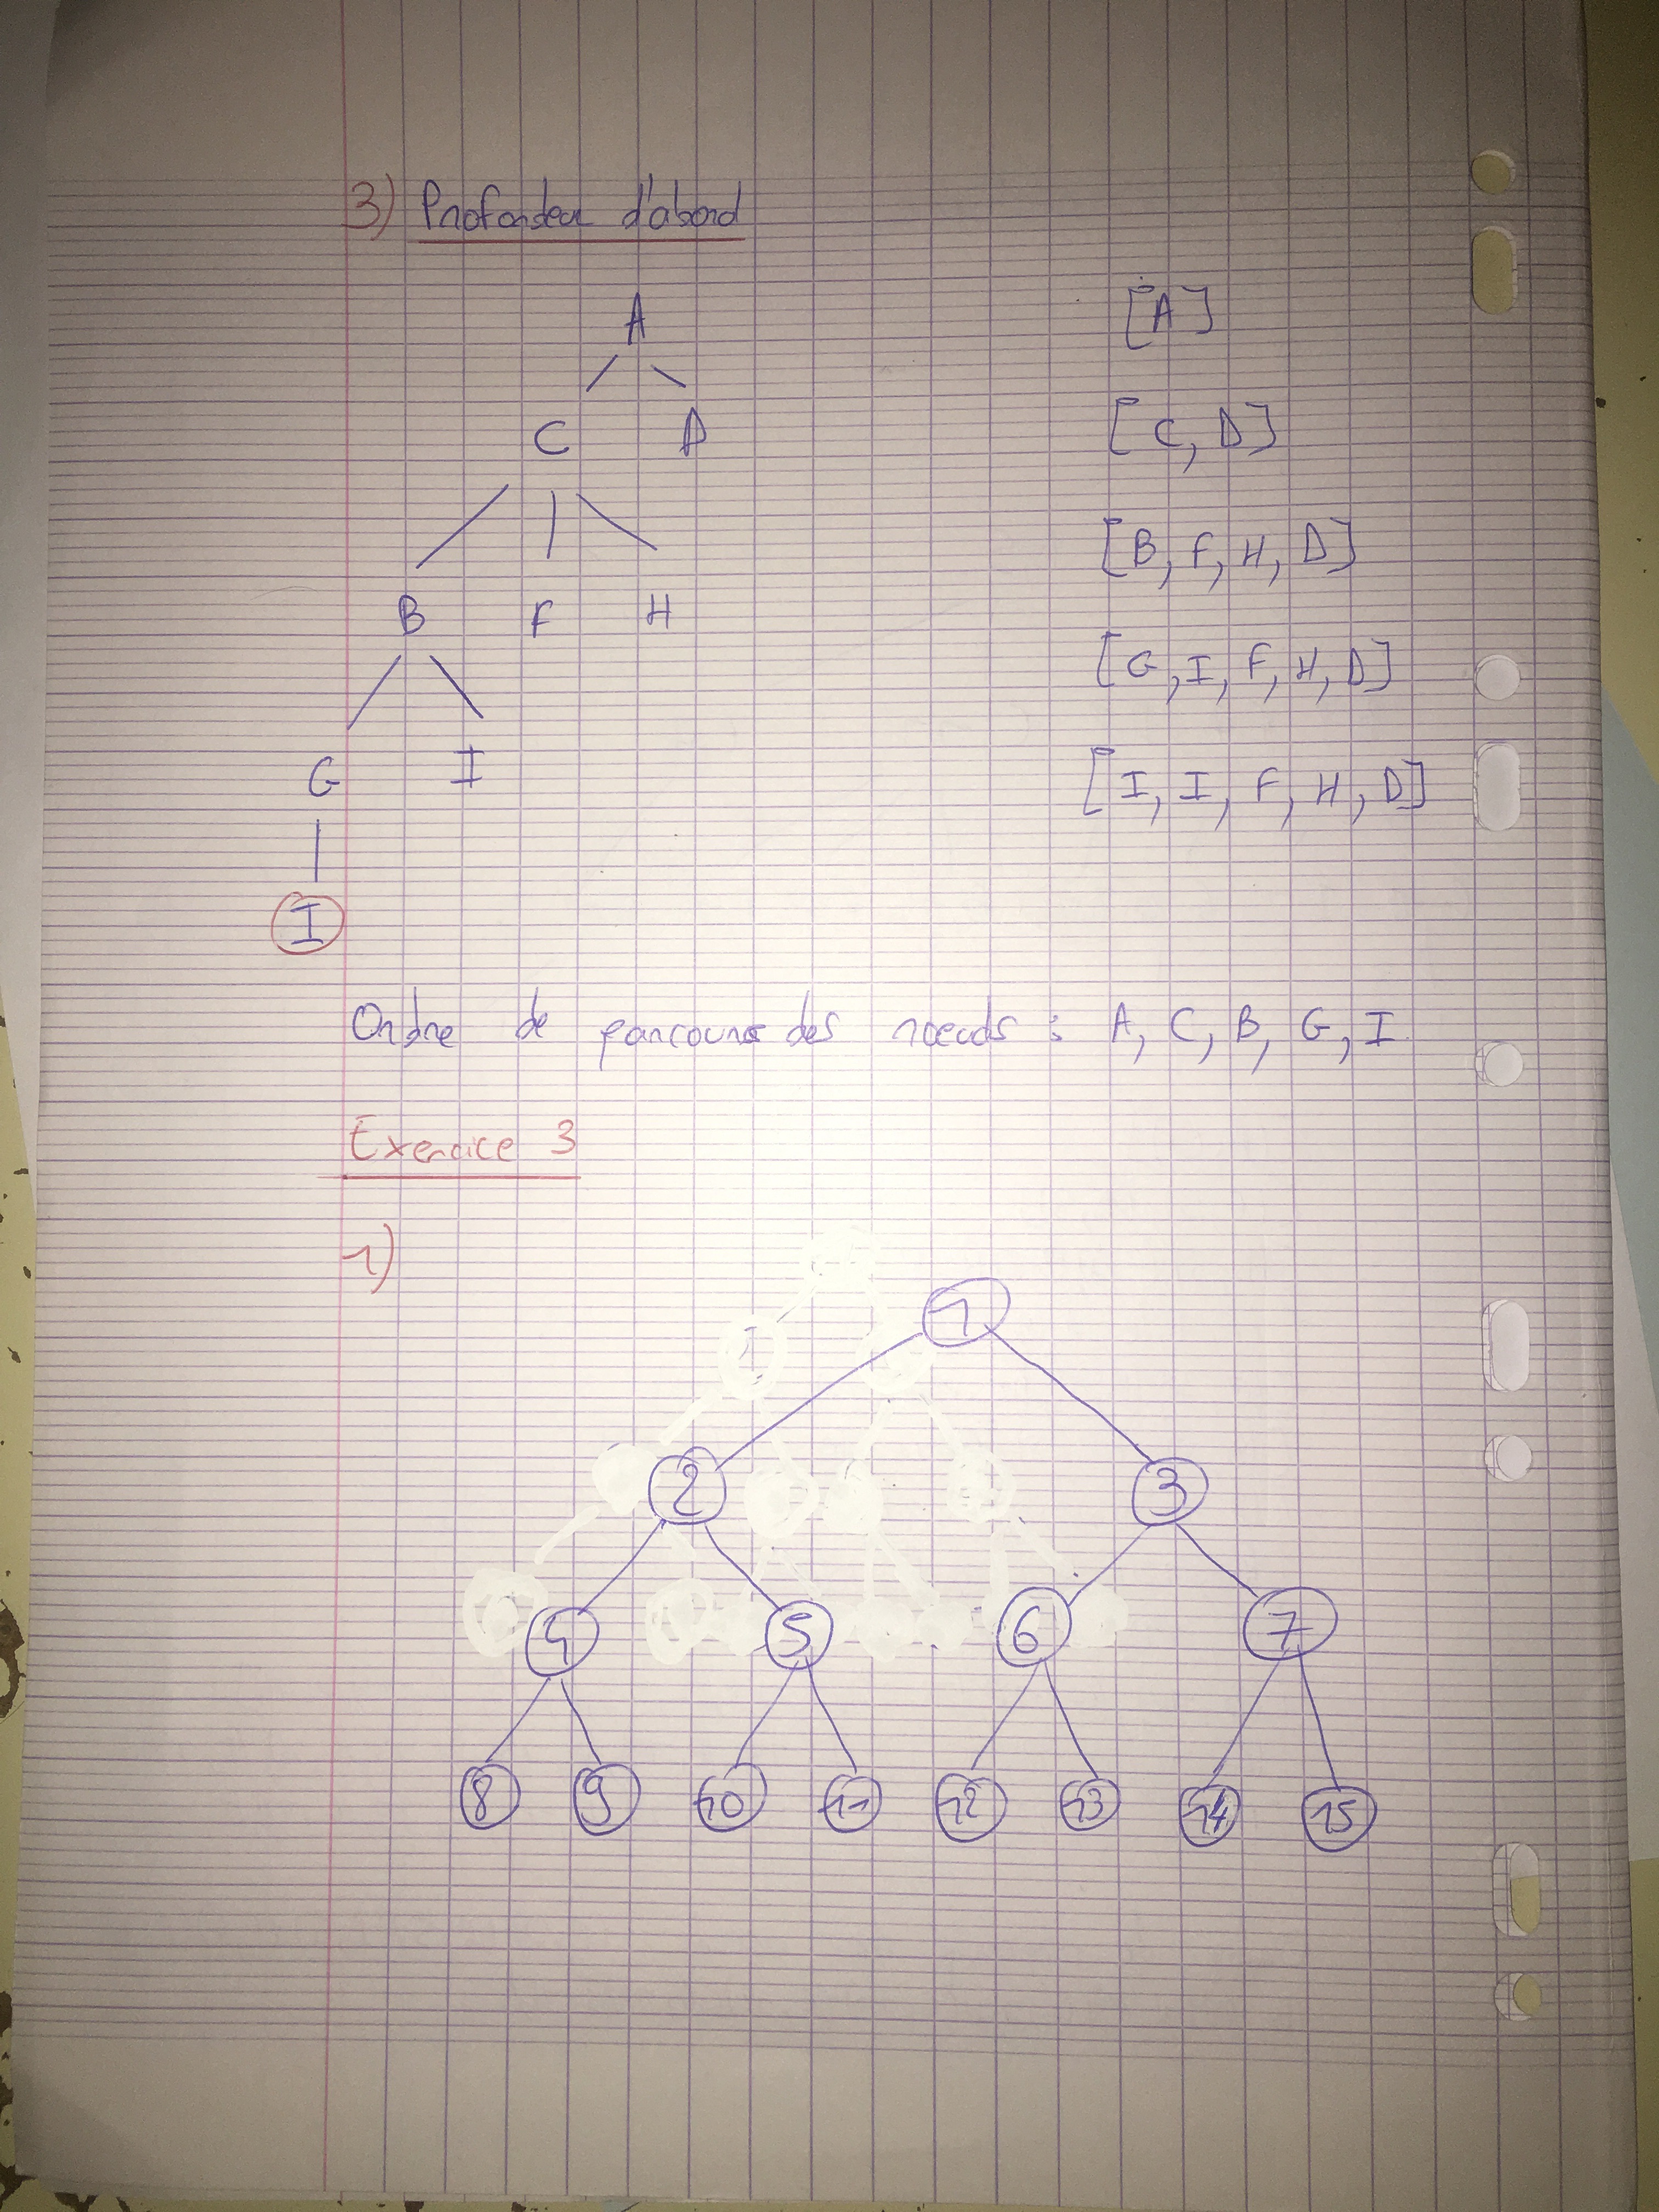 3) Profondeur d'abord
A
[A]
C D
[C, D]
B F H
[B, F, H, D]
[G, I, F, H, D]
G I
[I, I, F, H, D]
I
Ordre de parcours des noeuds : A, C, B, G, I
Exercice 3
1)
1
2 3
4 5 6 7
8 9 10 11 12 13 14 15